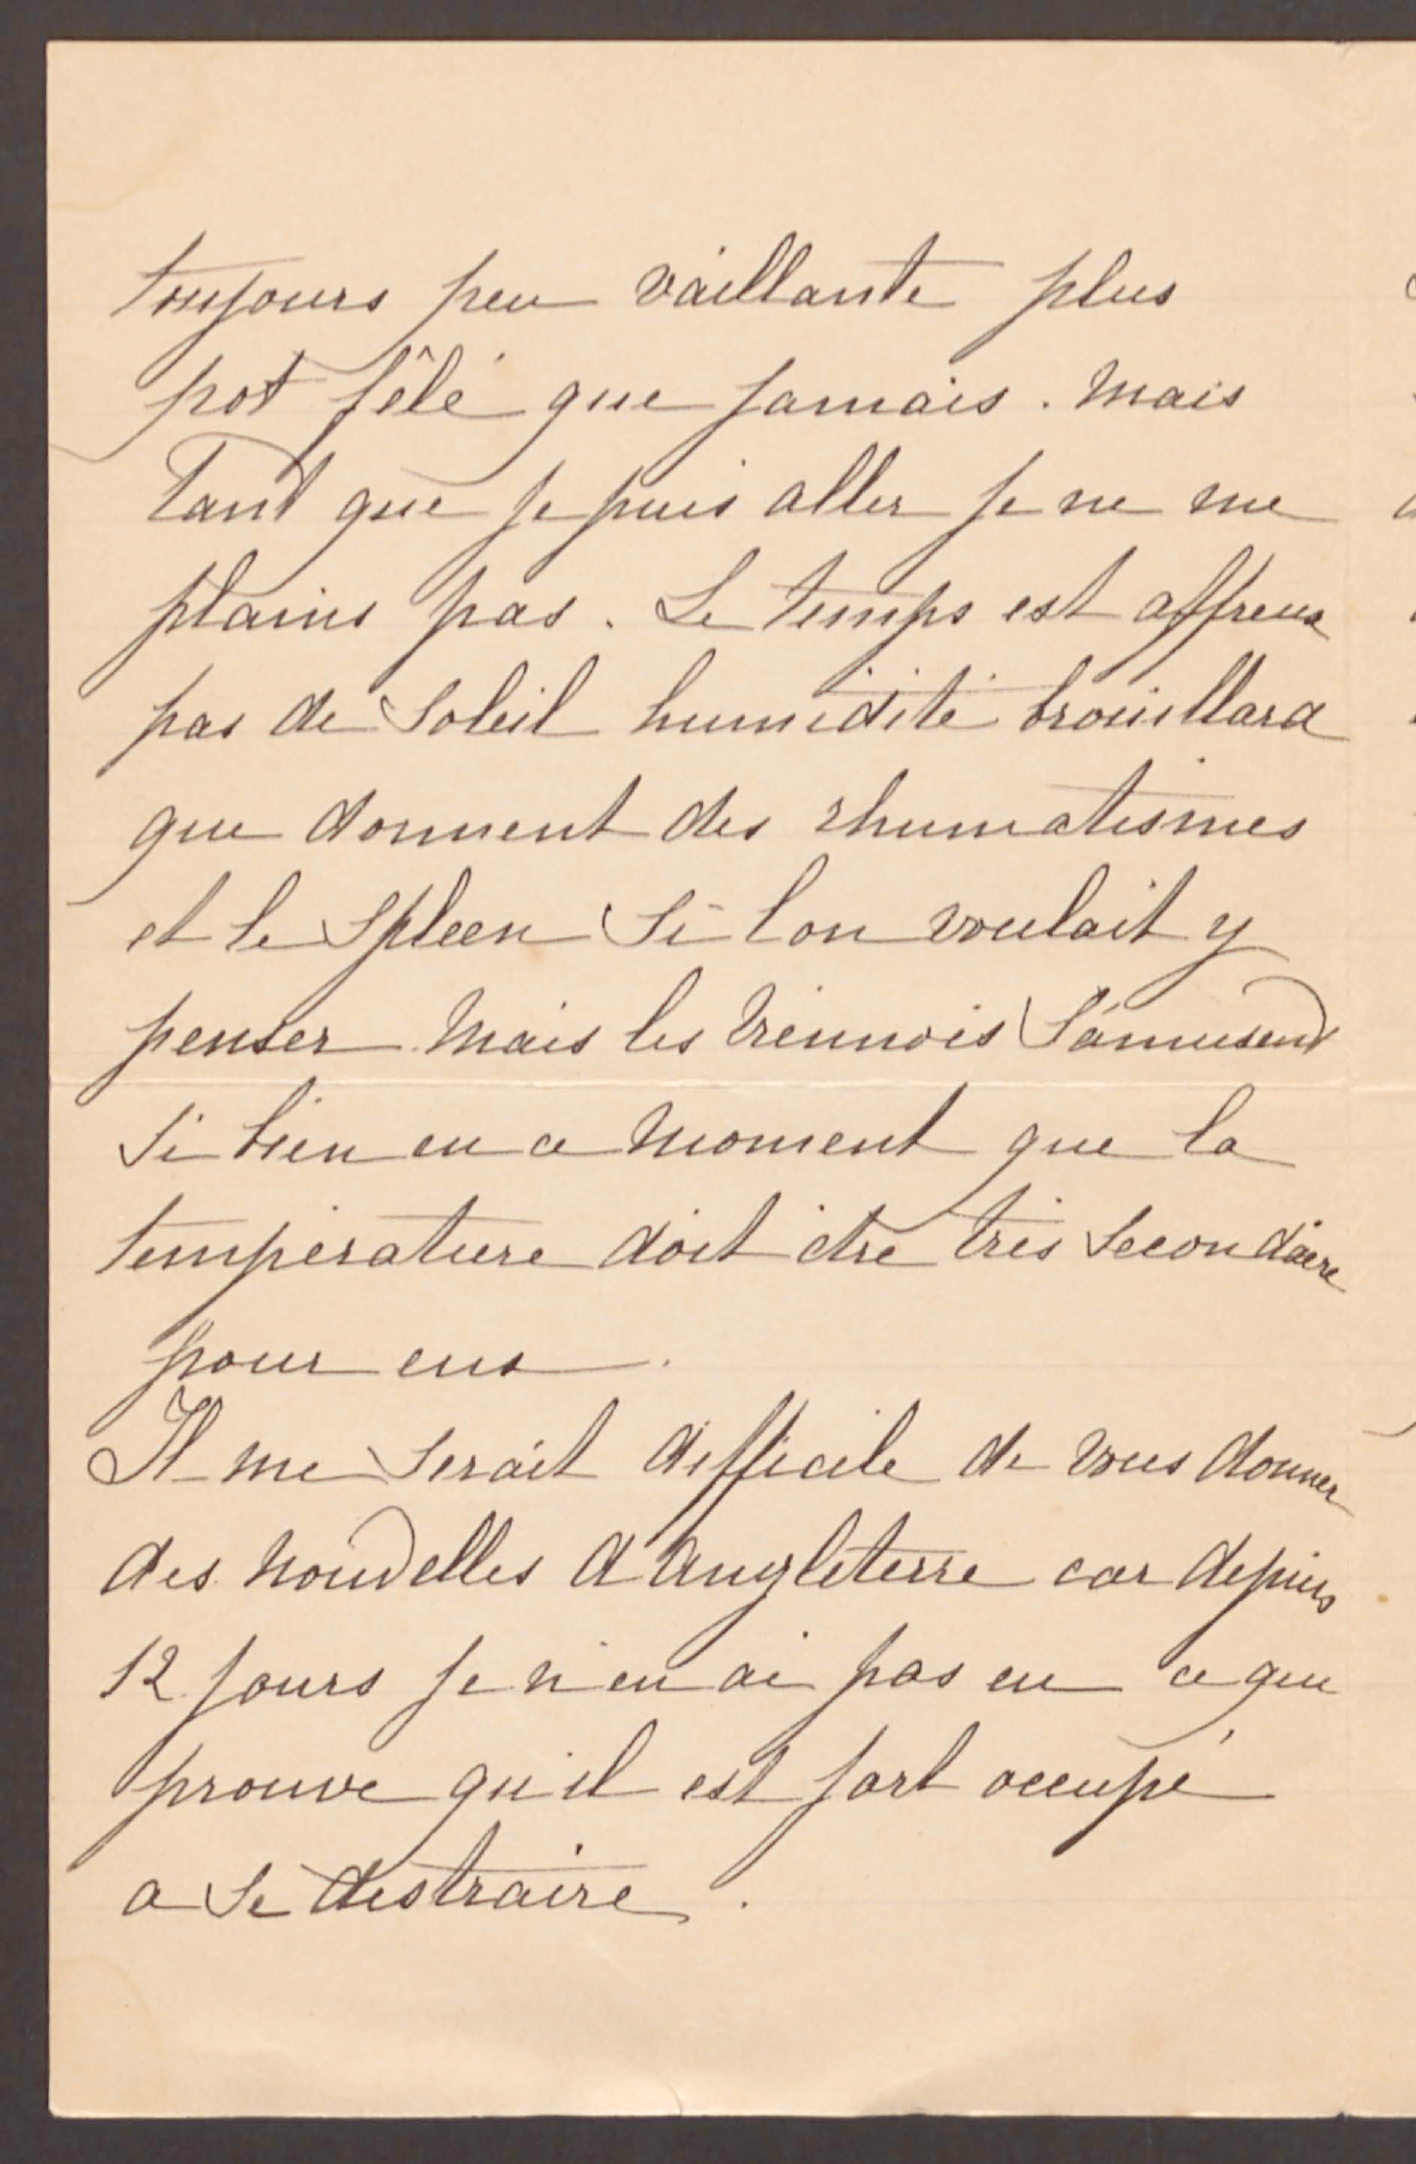 toujours peu vaillante plus
pot fêlé que jamais. Mais
tant que je puis aller je ne me
plains pas. Le temps est affreux
pas de soleil humidité brouillard
que donnent des rhumatismes
et le Spleen si l on voulait y
penser. Mais les Viennois s'amusent
si bien en ce moment que la
température doit être très secondaire
pour eux.
Il me serait difficile de vous donner
des nouvelles d'Angleterre car depuis
12 jours je n'en ai pas eu ce que
prouve qu'il est fort occupé
a se distraire.